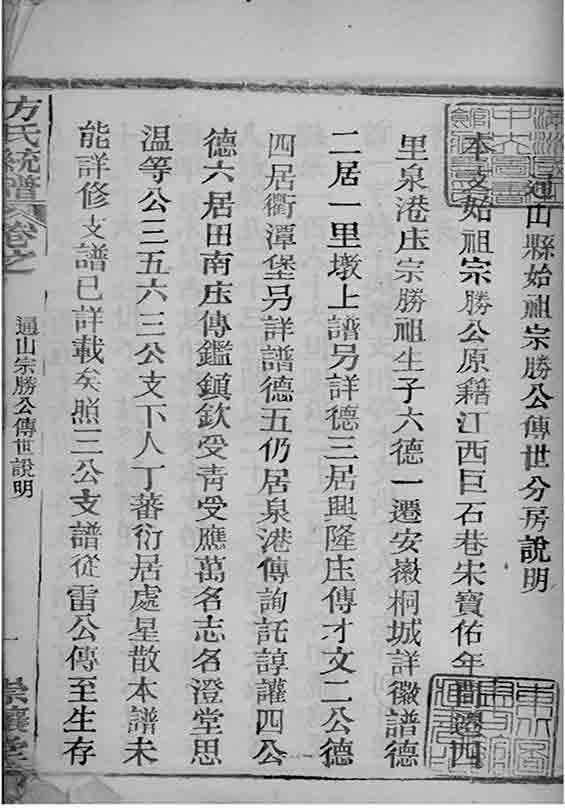 通山縣始祖宗勝公傳世分房說明
本支始祖宗勝公原籍江西巨石巷宋寶佑年間遷四
里泉港庄宗勝祖生子六德一遷安徽桐城詳徽譜德
二居一里墩上譜另詳德三居興隆庄傳才文二公德
四居衢潭堡另詳譜德五仍居泉港傳詢託諄讙四公
德六居田南庄傳鑑鎮欽受青受應萬名志名澄堂思
溫等公三五六三公支下人丁蕃衍居處星散本譜未
能詳修支譜已詳載矣照三公支譜從雷公傳至生存
方氏統譜 卷之
通山宗勝公傳世說明
一